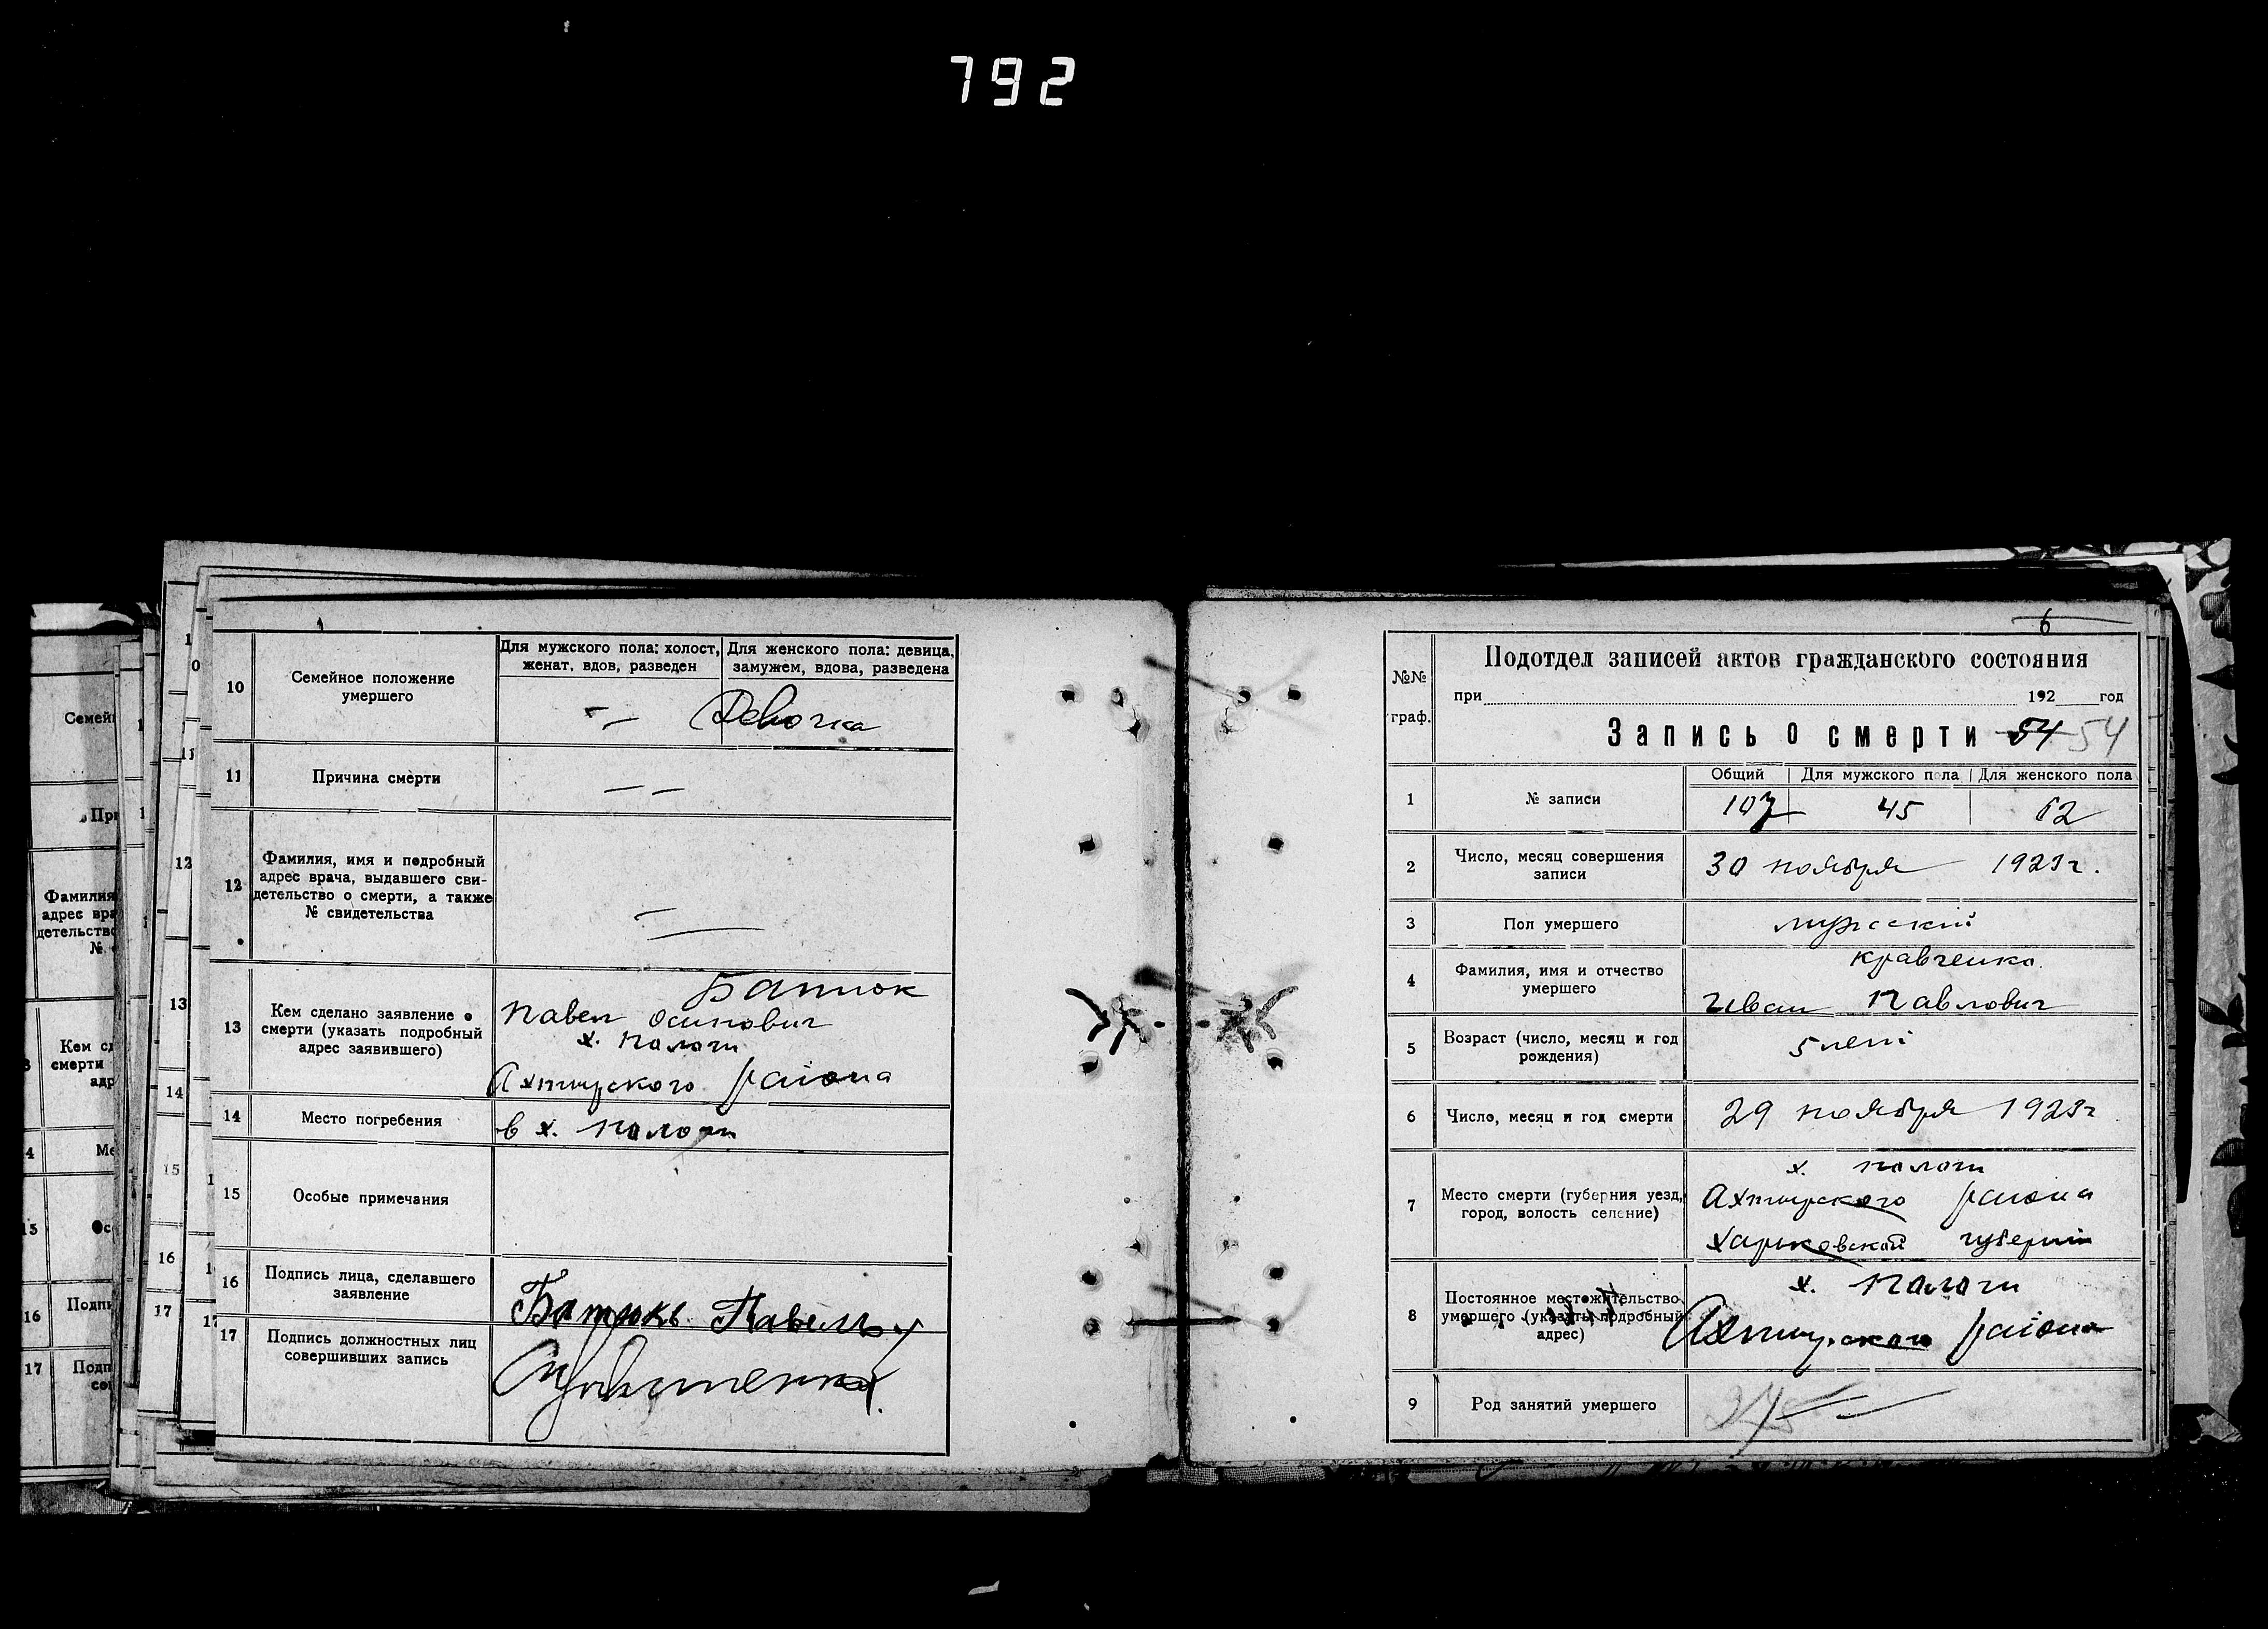 792
10
Семейное положение
умершего
Для мужского пола: холост,
женат, вдов, разведен
Для женского пола: девица,
замужем, вдова, разведена
— — Девочка
11
Причина смерти
— —
12
Фамилия, имя и подробный
адрес врача, выдавшего сви-
детельство о смерти, а также
№ свидетельства
13
Кем сделано заявление о
смерти (указать подробный
адрес заявившего)
Батюк
Павел Осипович
х. Пологи
Ахтырского раіона
14
Место погребения
в х. Пологи
15
Особые примечания
16
Подпись лица, сделавшего
заявление
Батюкъ Павелъ
17
Подпись должностных лиц
совершивших запись
6
№№
граф.
Подотдел записей актов гражданского состояния
при 192 год
Запись о смерти 54 54
1
№ записи
Общий
Для мужского пола
Для женского пола
107
45
62
2
Число, месяц совершения
записи
30 ноября 1923г.
3
Пол умершего
мужскій
4
Фамилия, имя и отчество
умершего
Кравченко
Иван Павлович
5
Возраст (число, месяц и год
рождения)
5 лет
6
Число, месяц и год смерти
29 ноября 1923г
7
Место смерти (губерния уезд,
город, волость селение)
х. Пологи
Ахтырского раіона
Харьковской губерніи
8
Постоянное местожительство
умершего (указать подробный
адрес)
х. Пологи
Ахтырского раіона
9
Род занятий умершего